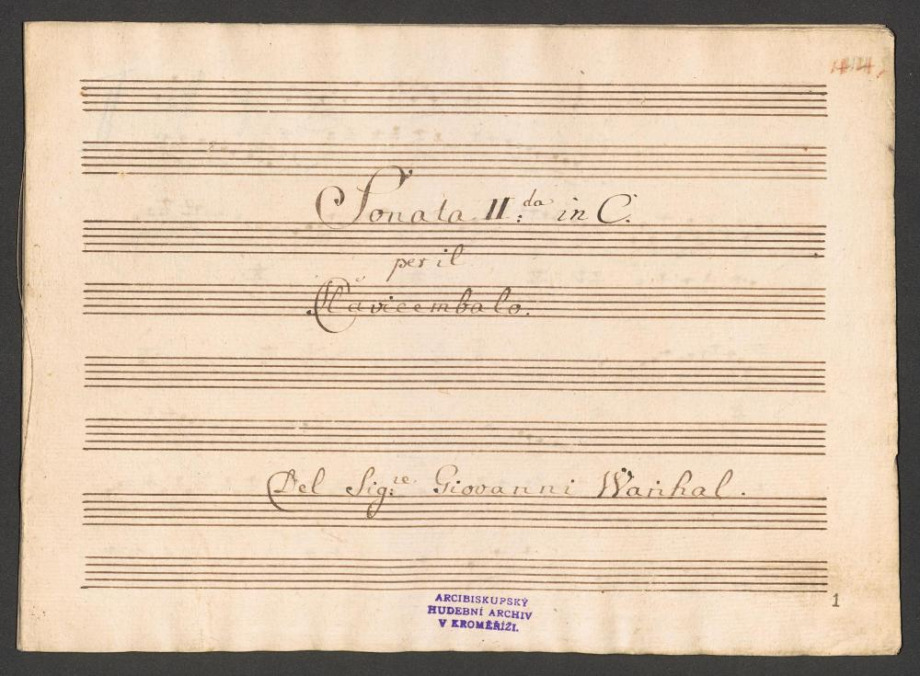 Sonata II:da in C.
per il
Clavicembalo.
Del Sig:re Giovanni Wanhal.
1
ARCIBISKUPSKÝ
HUDEBNÍ ARCHIV
V KROMĚŘÍŽI.